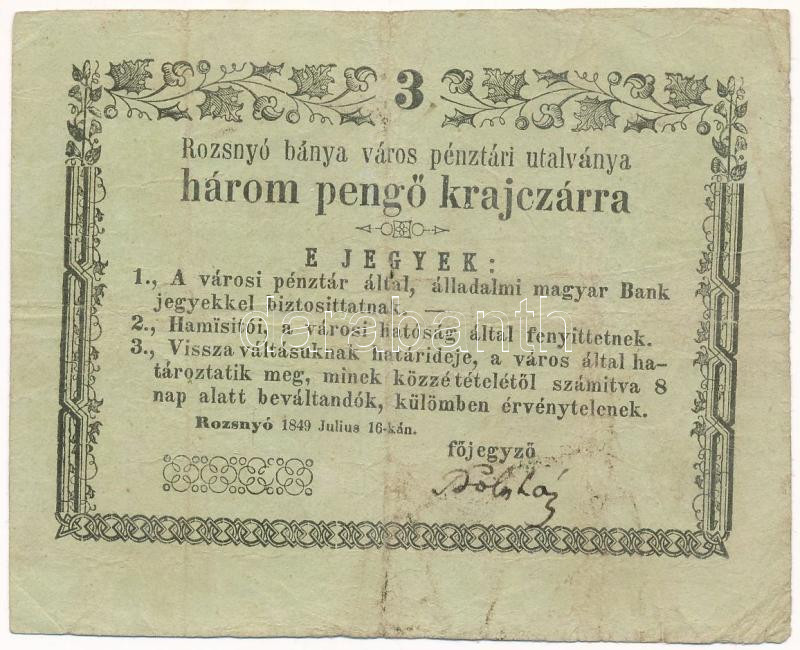 3
Rozsnyó bánya város pénztári utalványa
három pengő krajczárra
E JEGYEK:
1., A városi pénztár által, álladalmi magyar Bank
jegyekkel biztosittatnak. —
2., Hamïsitói, a városi hatóság által fenyittetnek.
3., Vissza váltásuknak határideje, a város által ha-
tároztatik meg, minek közzé tételétől számitva 8
nap alatt beváltandók, külömben érvénytelenek.
Rozsnyó 1849 Julius 16-kán.
főjegyző
darabanth